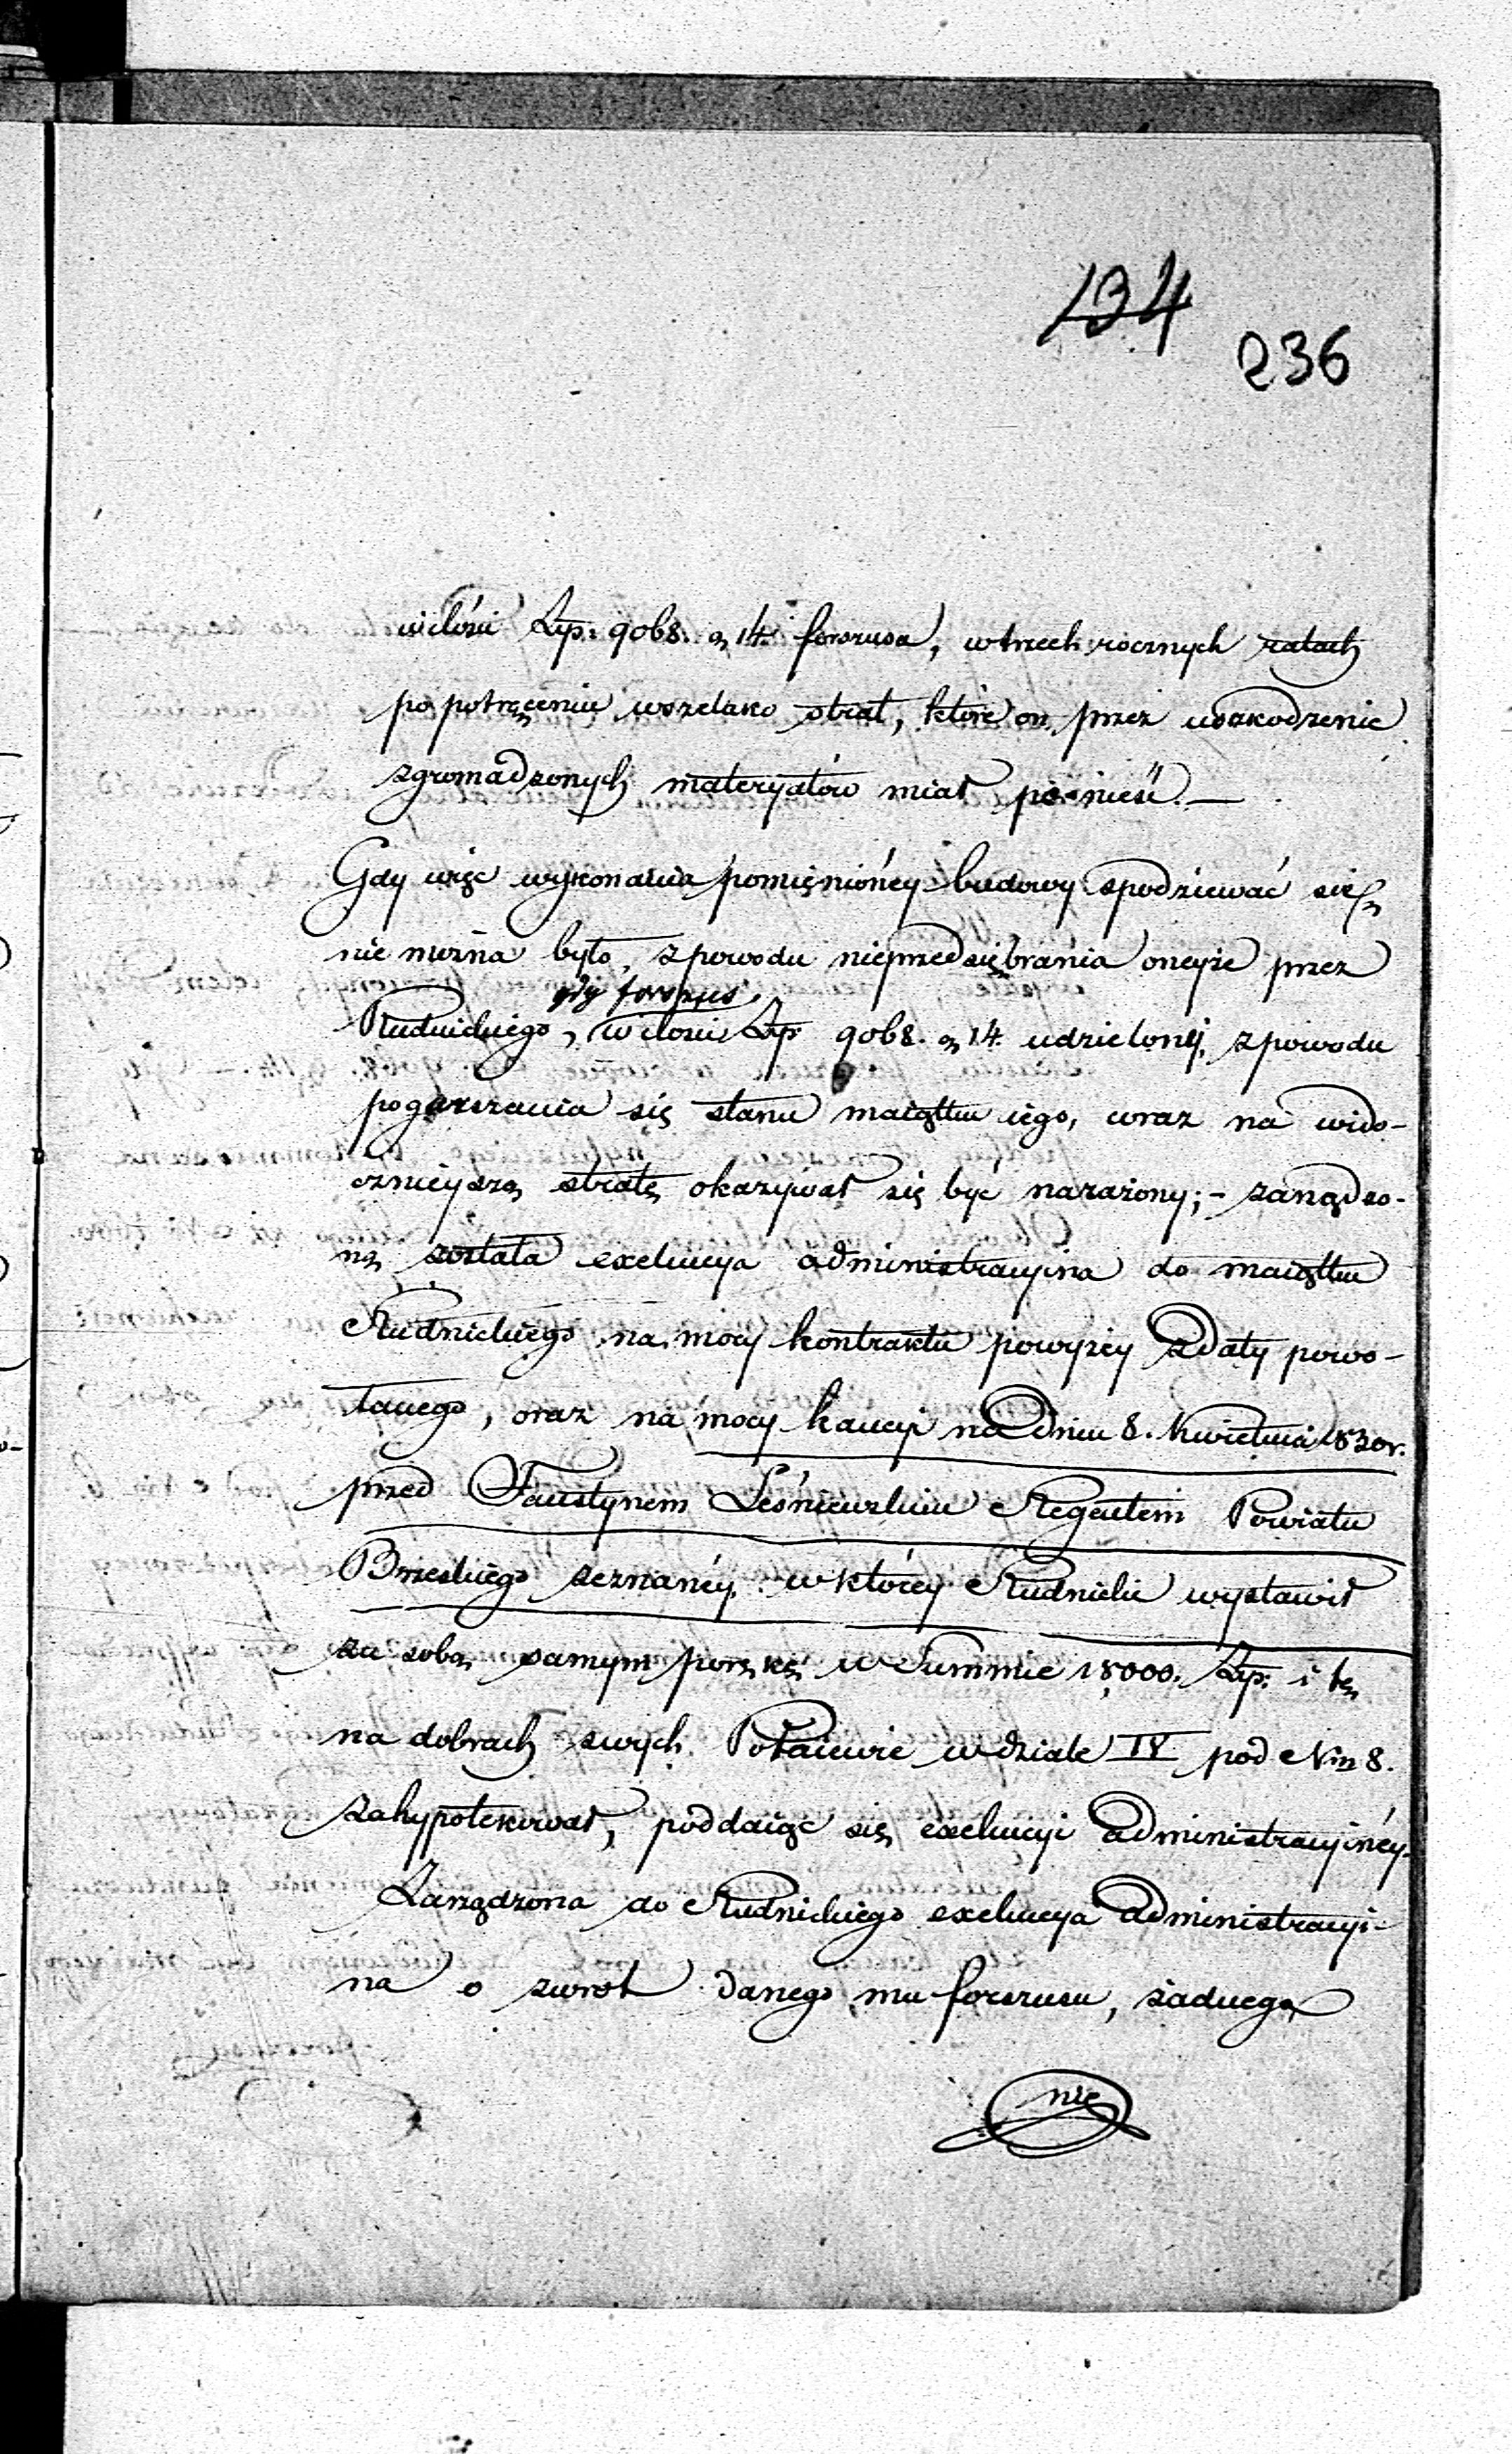 134
236
w ilości Złp: 9068. g 14. forszusa, w trzech rocznych ratach
po potrąceniu wszelako strat, które on przez uszkodzenie
zgromadzonych materyałów miał ponieść. —
Gdy więc wykonania pomięnioney budowy spodziewać się
nie można było, z powodu nieprzedsiębrania oneyże przez
gdy forszus
Rudnickiego, w ilości Złp 9068. g 14. udzielony, z powodu
pogarszania się stanu maiątku iego, coraz na wido-
cznieyszą stratę okazywał się być narażony; - zarządzo-
ną została exekucya administracyina do maiątku
Rudnickiego na mocy kontraktu powyżey z daty powo-
łanego, oraz na mocy kaucyi na dniu 8. Kwietnia 1830 r.
przed Faustynem Leśniewskim Regentem Powiatu
Brzeskiego zeznaney. w którey Rudnicki wystawił
za sobą samym porękę w Summie 18,000. Złp: i tę
na dobrach swych Połaiewie w dziale IV pod Nrm 8.
zahypotekował, poddaiąc się exekucyi administracyiney.
Zarządzona do Rudnickiego exekucya administracyi-
na o zwrot danego mu forszusu, żadnego
nie